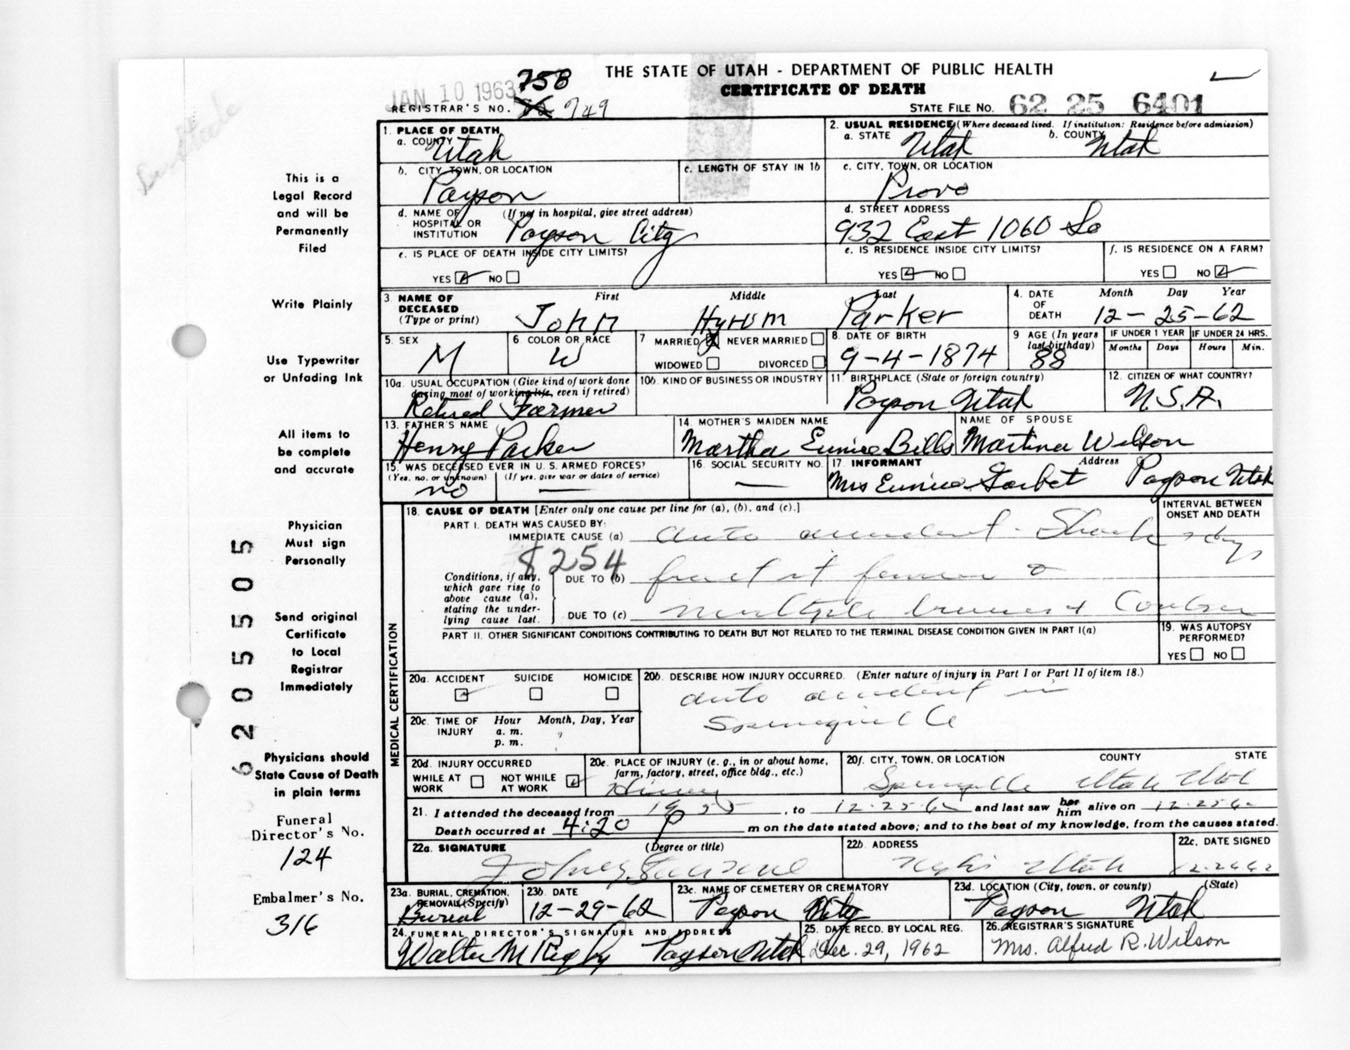 THE STATE OF UTAH - DEPARTMENT OF PUBLIC HEALTH
CERTIFICATE OF DEATH
JAN 10 1963
758
REGISTRAR'S NO. 749
STATE FILE NO. 62 25 6401
1. PLACE OF DEATH
a. COUNTY Utah
2. USUAL RESIDENCE (Where deceased lived. If institution: Residence before admission)
a. STATE Utah b. COUNTY Utah
b. CITY, TOWN, OR LOCATION Payson
c. LENGTH OF STAY IN 1b
c. CITY, TOWN, OR LOCATION Provo
d. NAME OF HOSPITAL OR INSTITUTION (If not in hospital, give street address) Payson City
d. STREET ADDRESS 932 East 1060 So
e. IS PLACE OF DEATH INSIDE CITY LIMITS? YES NO
e. IS RESIDENCE INSIDE CITY LIMITS? YES NO
f. IS RESIDENCE ON A FARM? YES NO
3. NAME OF DECEASED (Type or print) First John Middle Hyrum Last Parker
4. DATE OF DEATH Month Day Year 12-25-62
5. SEX M
6 COLOR OR RACE W
7 MARRIED NEVER MARRIED WIDOWED DIVORCED
8. DATE OF BIRTH 9-4-1874
9 AGE (In years last birthday) 88
IF UNDER 1 YEAR Months Days
IF UNDER 24 HRS. Hours Min.
10a. USUAL OCCUPATION (Give kind of work done during most of working life, even if retired) Retired Farmer
10b. KIND OF BUSINESS OR INDUSTRY
11. BIRTHPLACE (State or foreign country) Payson Utah
12. CITIZEN OF WHAT COUNTRY? U.S.A.
13. FATHER'S NAME Henry Parker
14. MOTHER'S MAIDEN NAME Martha Eunice Bills
NAME OF SPOUSE Martina Wilson
15. WAS DECEASED EVER IN U.S. ARMED FORCES? (Yes, no, or unknown) (If yes, give war or dates of service) no
16. SOCIAL SECURITY NO.
17. INFORMANT Address Mrs Eunice Payson Utah
18. CAUSE OF DEATH [Enter only one cause per line for (a), (b), and (c).]
INTERVAL BETWEEN ONSET AND DEATH
PART I. DEATH WAS CAUSED BY:
IMMEDIATE CAUSE (a) auto accident - Shock
8254
Conditions, if any, which gave rise to above cause (a), stating the underlying cause last.
DUE TO (b)
DUE TO (c) multiple
PART II. OTHER SIGNIFICANT CONDITIONS CONTRIBUTING TO DEATH BUT NOT RELATED TO THE TERMINAL DISEASE CONDITION GIVEN IN PART I(a)
19. WAS AUTOPSY PERFORMED? YES NO
MEDICAL CERTIFICATION
20a. ACCIDENT SUICIDE HOMICIDE
20b. DESCRIBE HOW INJURY OCCURRED. (Enter nature of injury in Part I or Part II of item 18.)
auto accident in
20c. TIME OF INJURY Hour a. m. p. m. Month, Day, Year
20d. INJURY OCCURRED WHILE AT WORK NOT WHILE AT WORK
20e. PLACE OF INJURY (e. g., in or about home, farm, factory, street, office bldg., etc.)
20f. CITY, TOWN, OR LOCATION COUNTY STATE
Utah Utah
21. I attended the deceased from 1955, to 12-25-62 and last saw her him alive on 12-25-62
Death occurred at 4:20 P m on the date stated above; and to the best of my knowledge, from the causes stated.
22a. SIGNATURE (Degree or title)
22b. ADDRESS Utah
22c. DATE SIGNED 12-26-62
23a. BURIAL, CREMATION, REMOVAL (Specify) Burial
23b. DATE 12-29-62
23c. NAME OF CEMETERY OR CREMATORY Payson City
23d. LOCATION (City, town, or county) (State) Payson Utah
24. FUNERAL DIRECTOR'S SIGNATURE AND ADDRESS Walter M Rigby Payson Utah
25. DATE RECD. BY LOCAL REG. Dec. 29, 1962
26. REGISTRAR'S SIGNATURE Mrs. Alfred R. Wilson
This is a
Legal Record
and will be
Permanently
Filed
Write Plainly
Use Typewriter
or Unfading Ink
All items to
be complete
and accurate
Physician
Must sign
Personally
Send original
Certificate
to Local
Registrar
Immediately
Physicians should
State Cause of Death
in plain terms
Funeral
Director's No.
124
Embalmer's No.
316
6205505